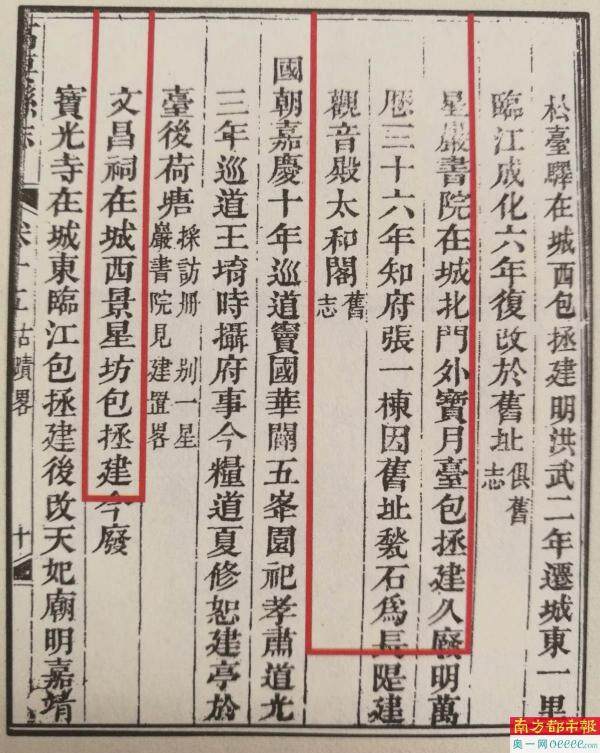 松臺驛在城西包拯建明洪武二年遷城東一里
臨江成化六年復改於舊址俱舊志
星巖書院在城北門外寶月臺包拯建久廢明萬
歷三十六年知府張一棟因舊址甃石為長隄建
觀音殿太和閣舊志
國朝嘉慶十年巡道竇國華闢五峯園祀孝肅道光
三年巡道王堉時攝府事今糧道夏修恕建亭於
臺後荷塘採訪册別一星巖書院見建置畧
文昌祠在城西景星坊包拯建今廢
寶光寺在城東臨江包拯建後改天妃廟明嘉靖
高要縣志
卷十五古蹟畧
十
南方都市报
奥一网oeeee.com